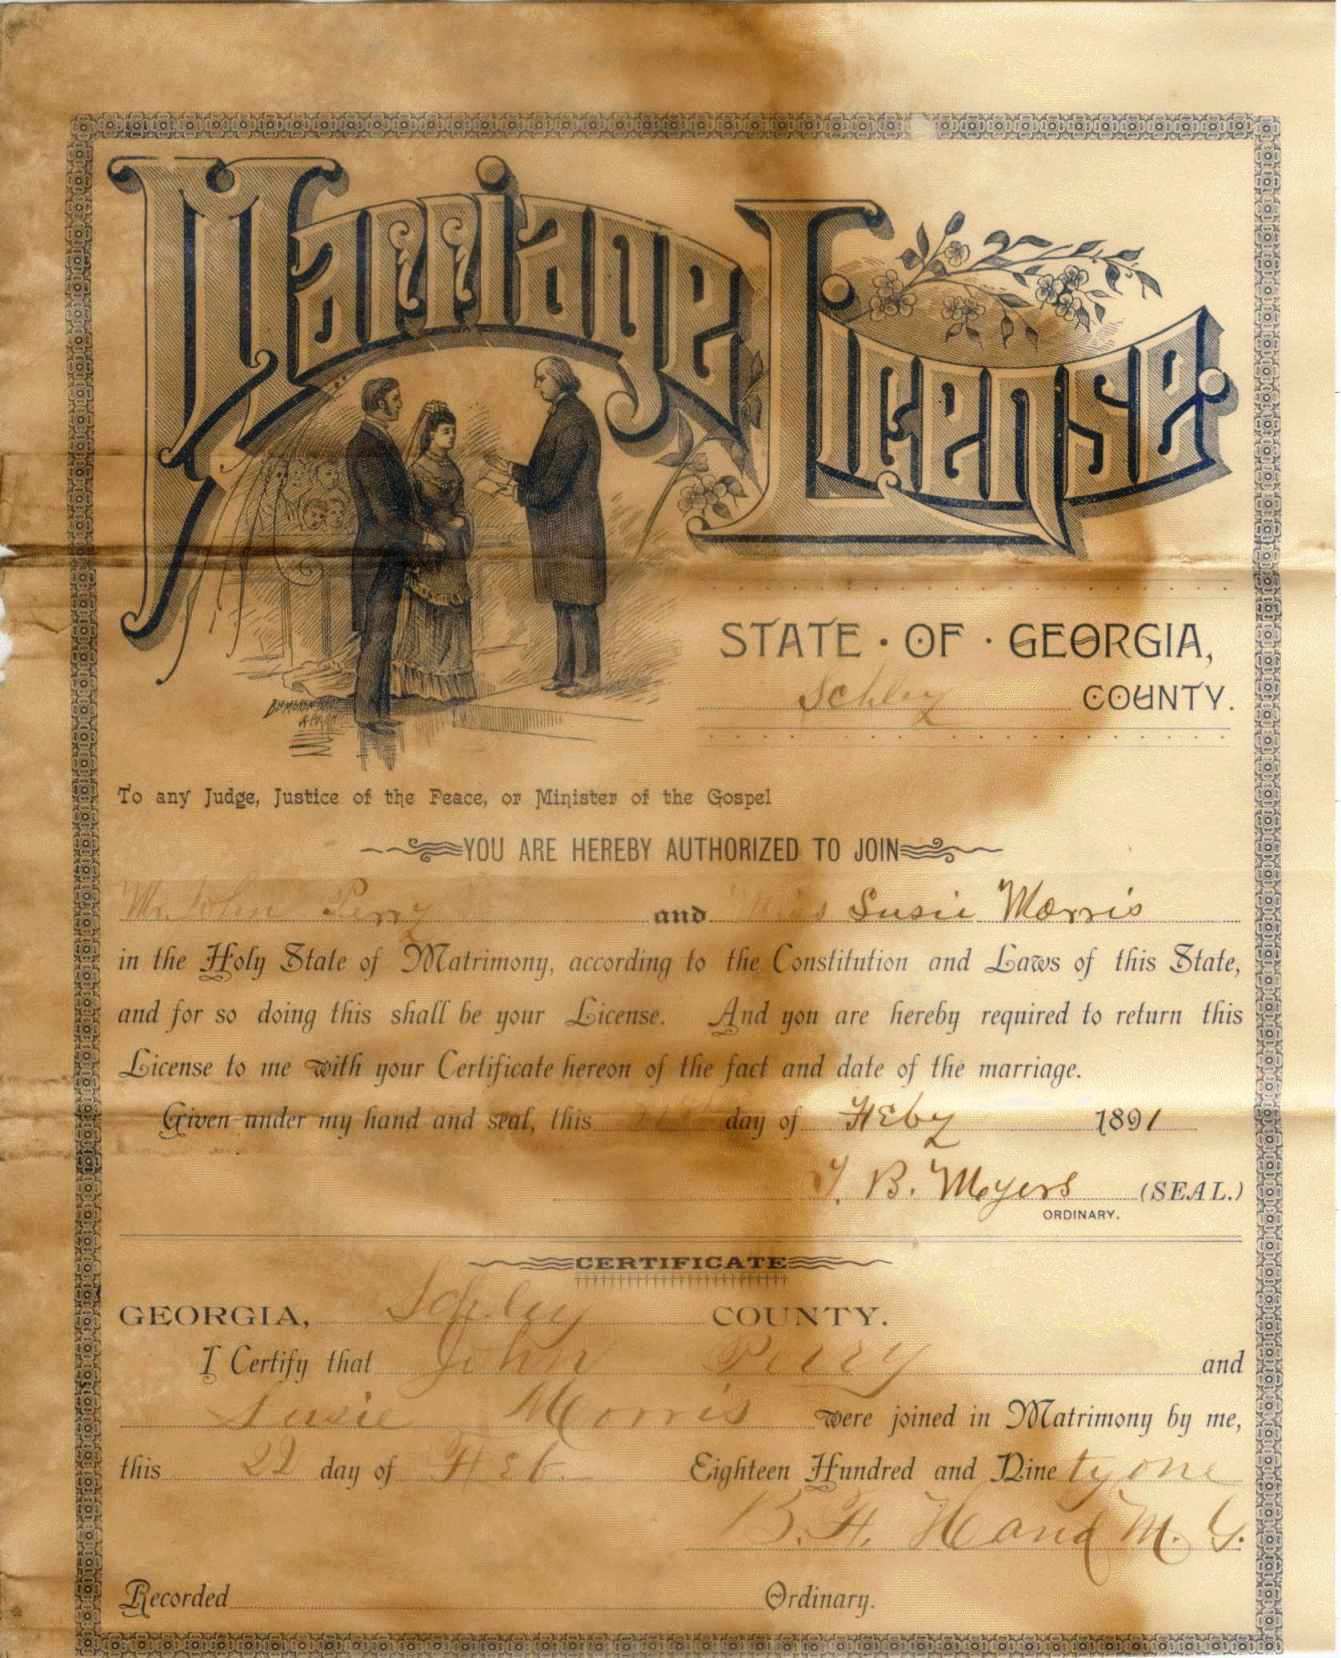 Marriage License.
STATE · OF · GEORGIA,
Schley COUNTY.
To any Judge, Justice of the Peace, or Minister of the Gospel
YOU ARE HEREBY AUTHORIZED TO JOIN
Mr. John Perry and Miss Susie Morris
in the Holy State of Matrimony, according to the Constitution and Laws of this State,
and for so doing this shall be your License. And you are hereby required to return this
License to me with your Certificate hereon of the fact and date of the marriage.
Given under my hand and seal, this day of Feby 1891
B. Myers (SEAL.)
ORDINARY.
CERTIFICATE
GEORGIA, Schley COUNTY.
I Certify that John Perry and
Susie Morris were joined in Matrimony by me,
this 22 day of Feb. Eighteen Hundred and Ninety one
B. H. Hand M. G.
Recorded Ordinary.